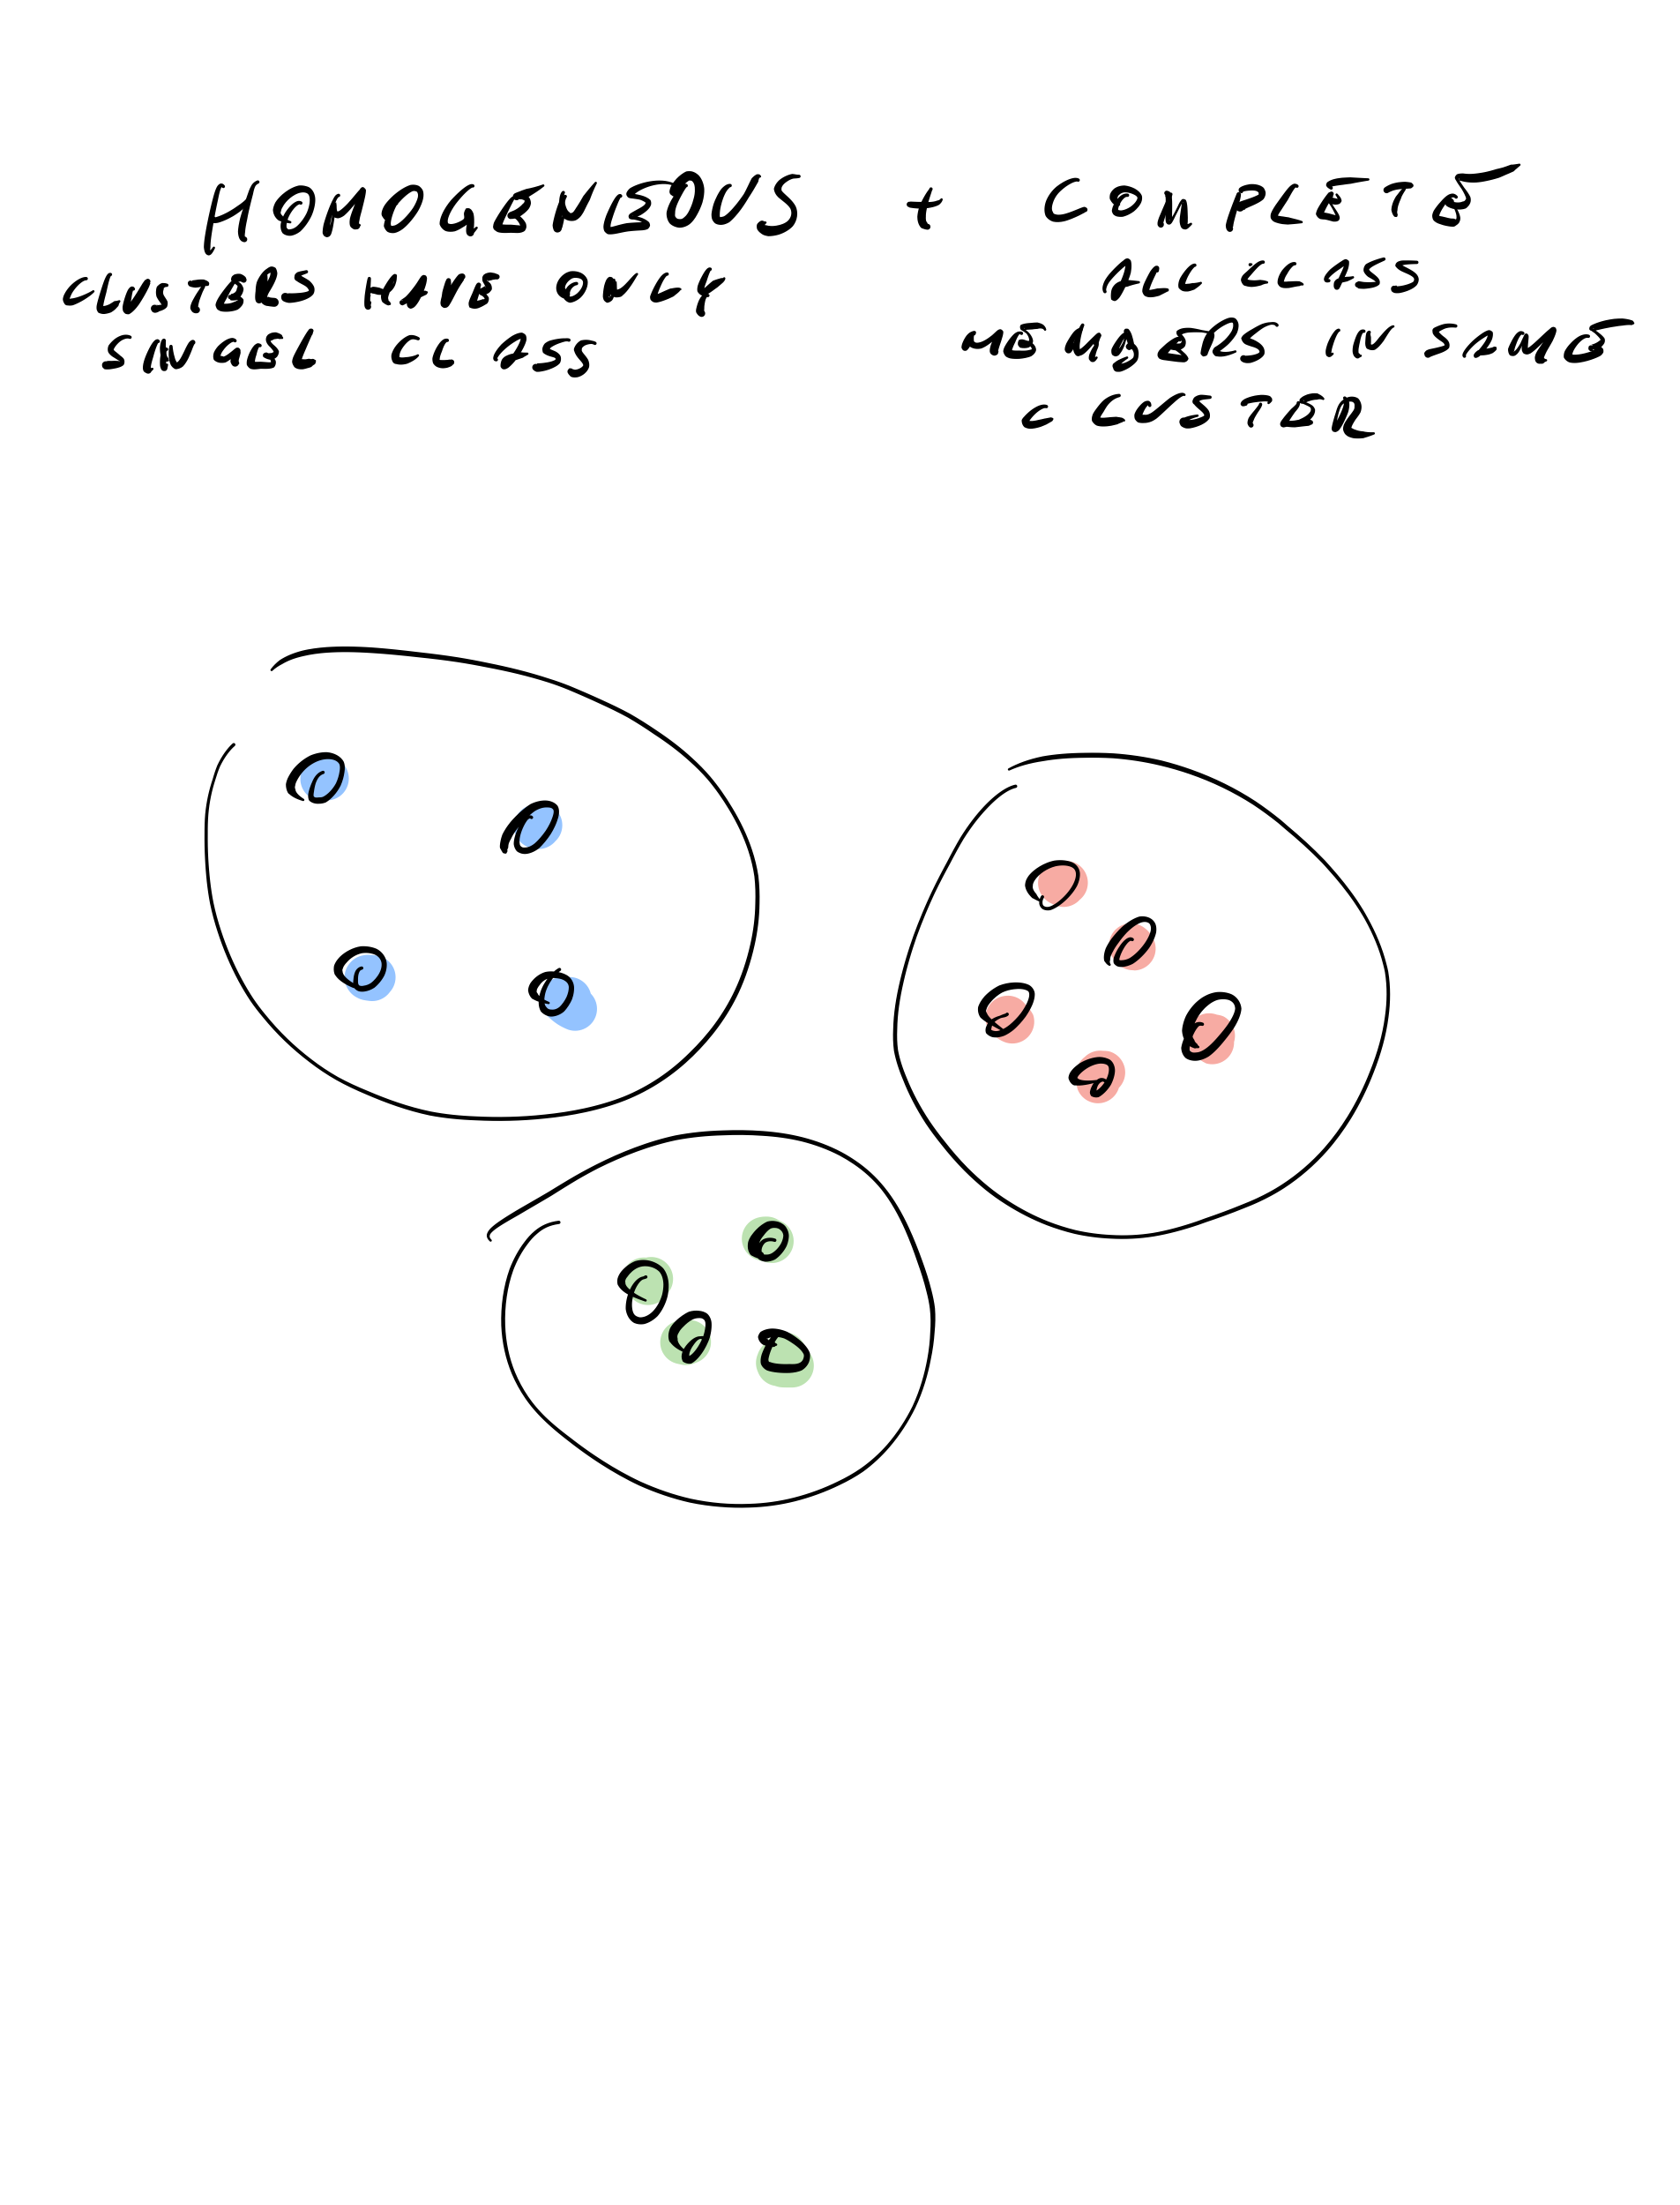 HOMOGENEOUS + COMPLETE
CLUSTERS HAVE ONLY
SINGLE CLASS
ALL CLASS
MEMBERS IN SAME
CLUSTER